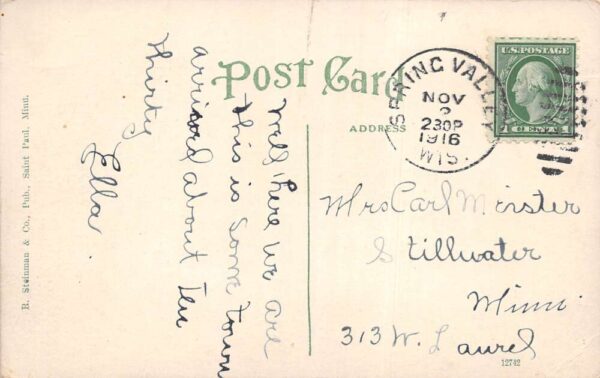 Post Card
ADDRESS
SPRING VALLEY
NOV
2
230P
1916
WIS.
U.S. POSTAGE
1 CENT 1
Well here we are
this is some town
arrived about ten
thirty
Ella.
Mrs Carl Meister
Stillwater
Minn.
313 W. Laurel
12742
R. Steinman & Co., Pub., Saint Paul, Minn.